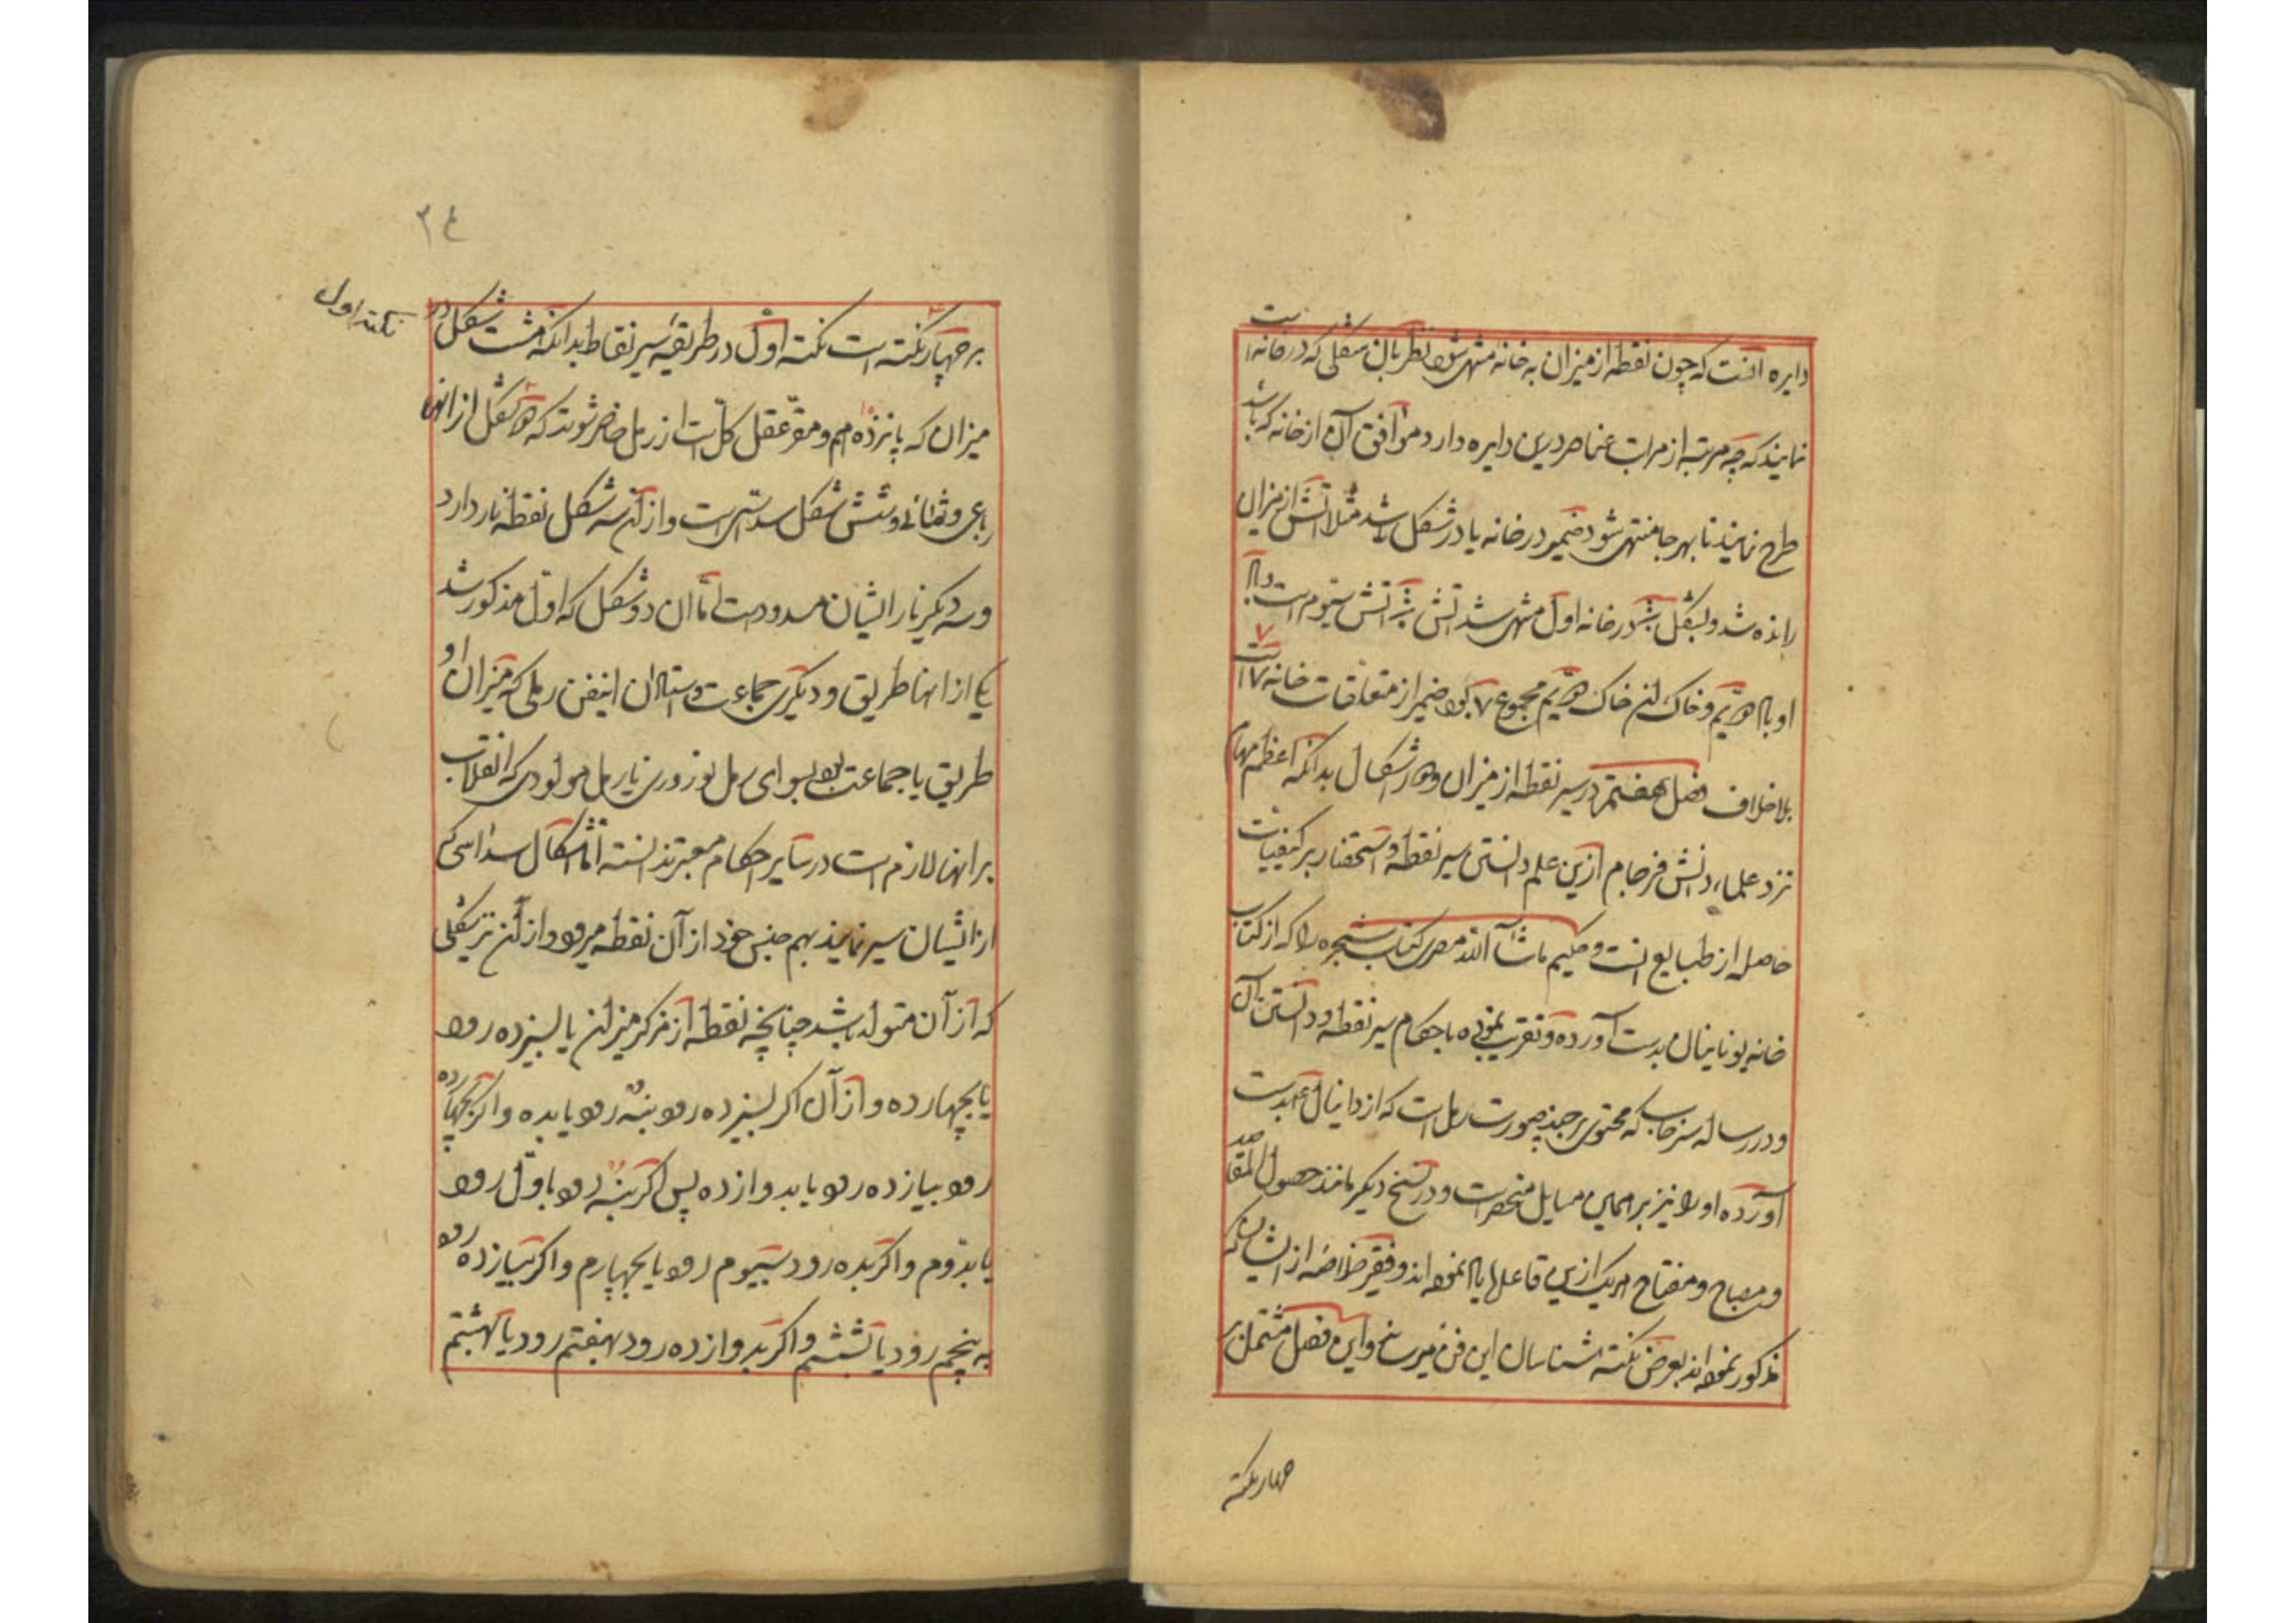 دایره انست که چون نقطه از میزان به خانه منتهی شود نظر بآن شکلی که در خانه است
نمایند که چه مرتبه از مراتب عناصر درین دایره دارد موافق آن از خانه که باشد
طرح نمایند تا بهر جا منتهی شود ضمیر در خانه یا در شکل باشد مثلا آتش از میزان
رانده شد و بشکل در خانه اول منتهی شد آتش آتش سیوم است و با
او باد و خاک این خاک مجموع ۷ بود ضمیر از متعلقات خانه ۷ است
بلاخلاف فصل هفتم در سیر نقطه از میزان و در اشکال بدانکه اعظم مهام
نزد علماء دانش فرجام ازین علم دانستن سیر نقطه و استحضار بر کیفیات
حاصله از طبایع انست و حکیم ماشاآالله مصری کتاب شجره را که از کتاب
خانه یونانیان بدست آورده و تقریب نموده باحکام سیر نقطه و دانستن آن
و در رساله سرخاب که محتوی بر چند صورت رمل است که از دانیال ع بدست
آورده او را نیز بر همین مسایل منحصر است و در نسخ دیگر مانند حصول المقاصد
و مصباح و مفتاح هر یک ازین قاعدها نموده اند و فقیر خلاصه از ایشان که
مذکور نموده اند بعرض نکته شناسان این فن میرساند و این فصل مشتمل بر
چهار نکته
۲٤
نکته اول
بر چهار نکته است نکته اول در طریقه سیر نقاط بدانکه هشت شکل در
میزان که پانزدهم و مقر عقل کل است از رمل حاضر شوند که دو شکل از انها
رباعی و ثمانی و شش شکل سداسی است و از آن سه شکل نقطه نار دارد
و سه دیگر نار ایشان مسدود است اما ان دو شکل که اول مذکور شد
یکی از انها طریق و دیگری جماعت و استادان اینفن رملی که میزان او
طریق یا جماعت بود بسوای رمل نوروزی یا رمل مولودی که انقلاب
بر انها لازم است در سایر احکام معتبر ندانسته اما اشکال سداسی که
از ایشان سیر نمایند بهم جنس خود از آن نقطه میرود و از آن نیز بشکلی
که از آن متولد باشد چنانچه نقطه از مرکز میزان یا بسیزده رود
یا بچهارده و از آن اگر بسیزده رود بنه رود یا بده و اگر بچهارده
رود بیازده رود یا بدوازده پس اگر بنه رود باول رود
یا بدوم و اگر بده رود بسیوم رود یا بچهارم و اگر بیازده رود
به پنجم رود یا بششم و اگر بدوازده رود بهفتم رود یا بهشتم